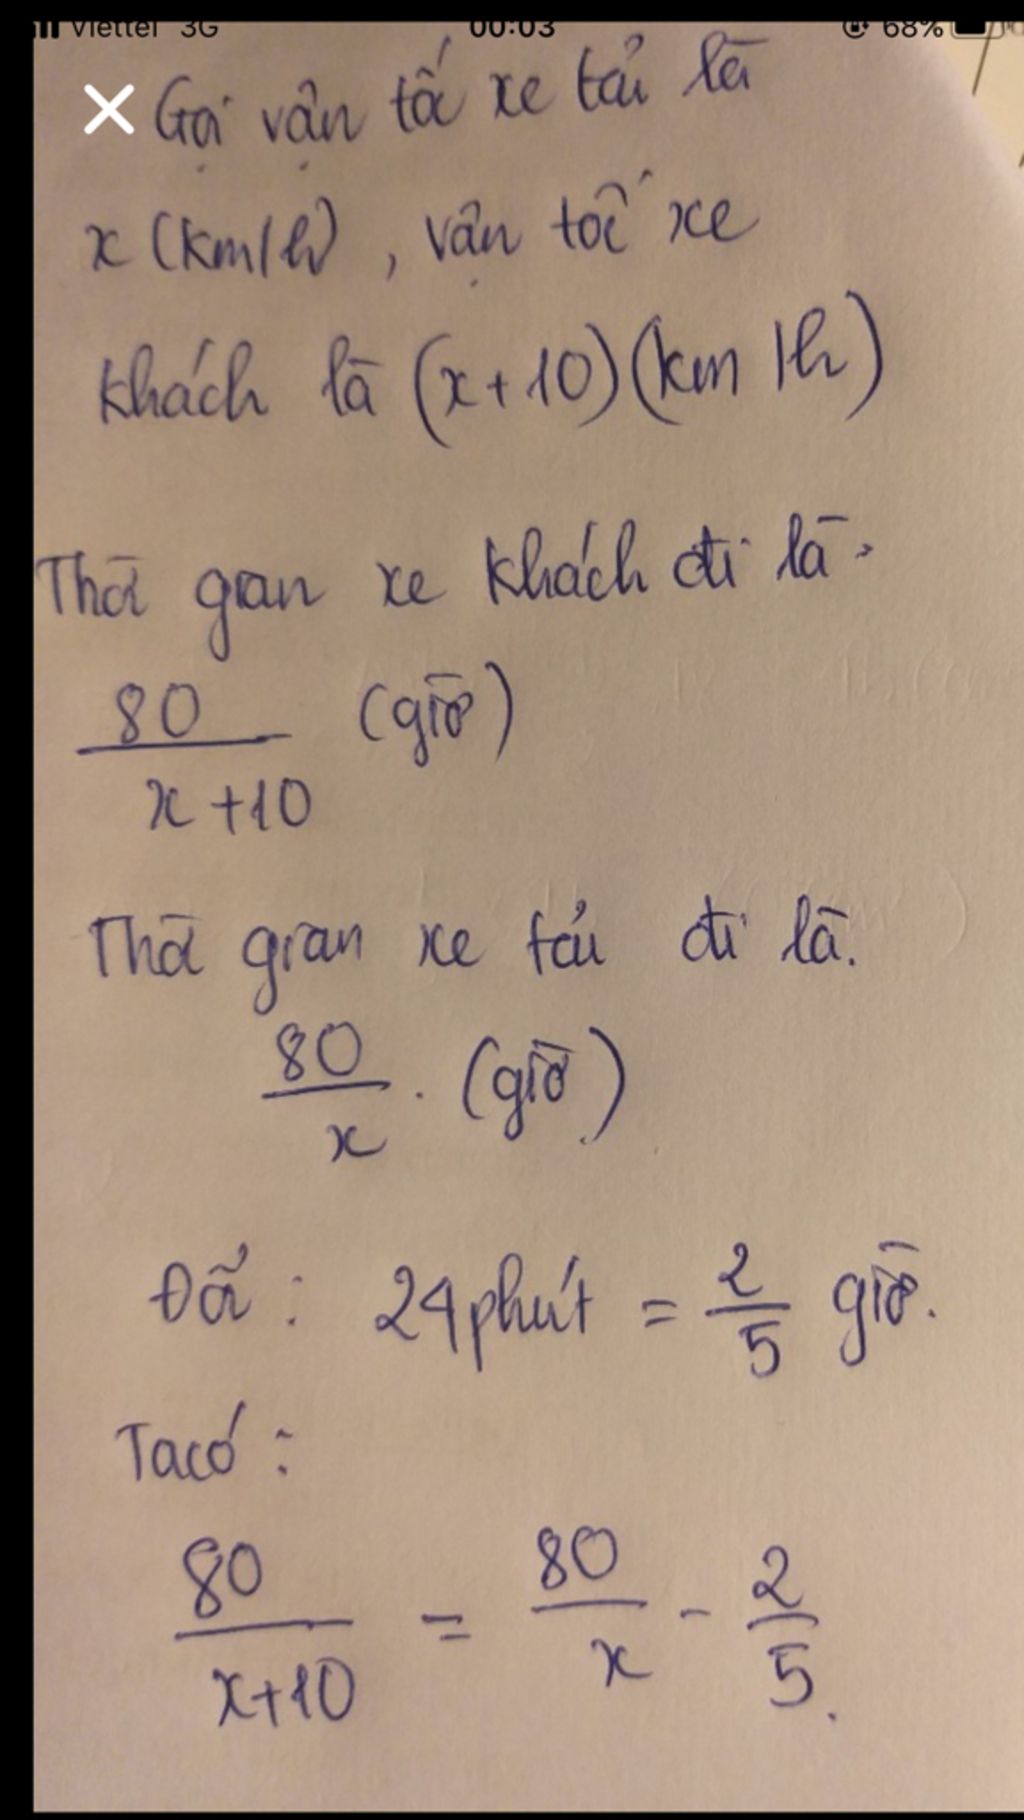 Viettel 3G 00:03 68%
Gọi vận tốc xe tải là
x (km/h), vận tốc xe
khách là (x+10)(km/h)
Thời gian xe khách đi là.
80
x+10 (giờ)
Thời gian xe tải đi là.
80
x . (giờ)
Đổi : 24 phút = 2/5 giờ.
Ta có :
80/x+10 = 80/x - 2/5.